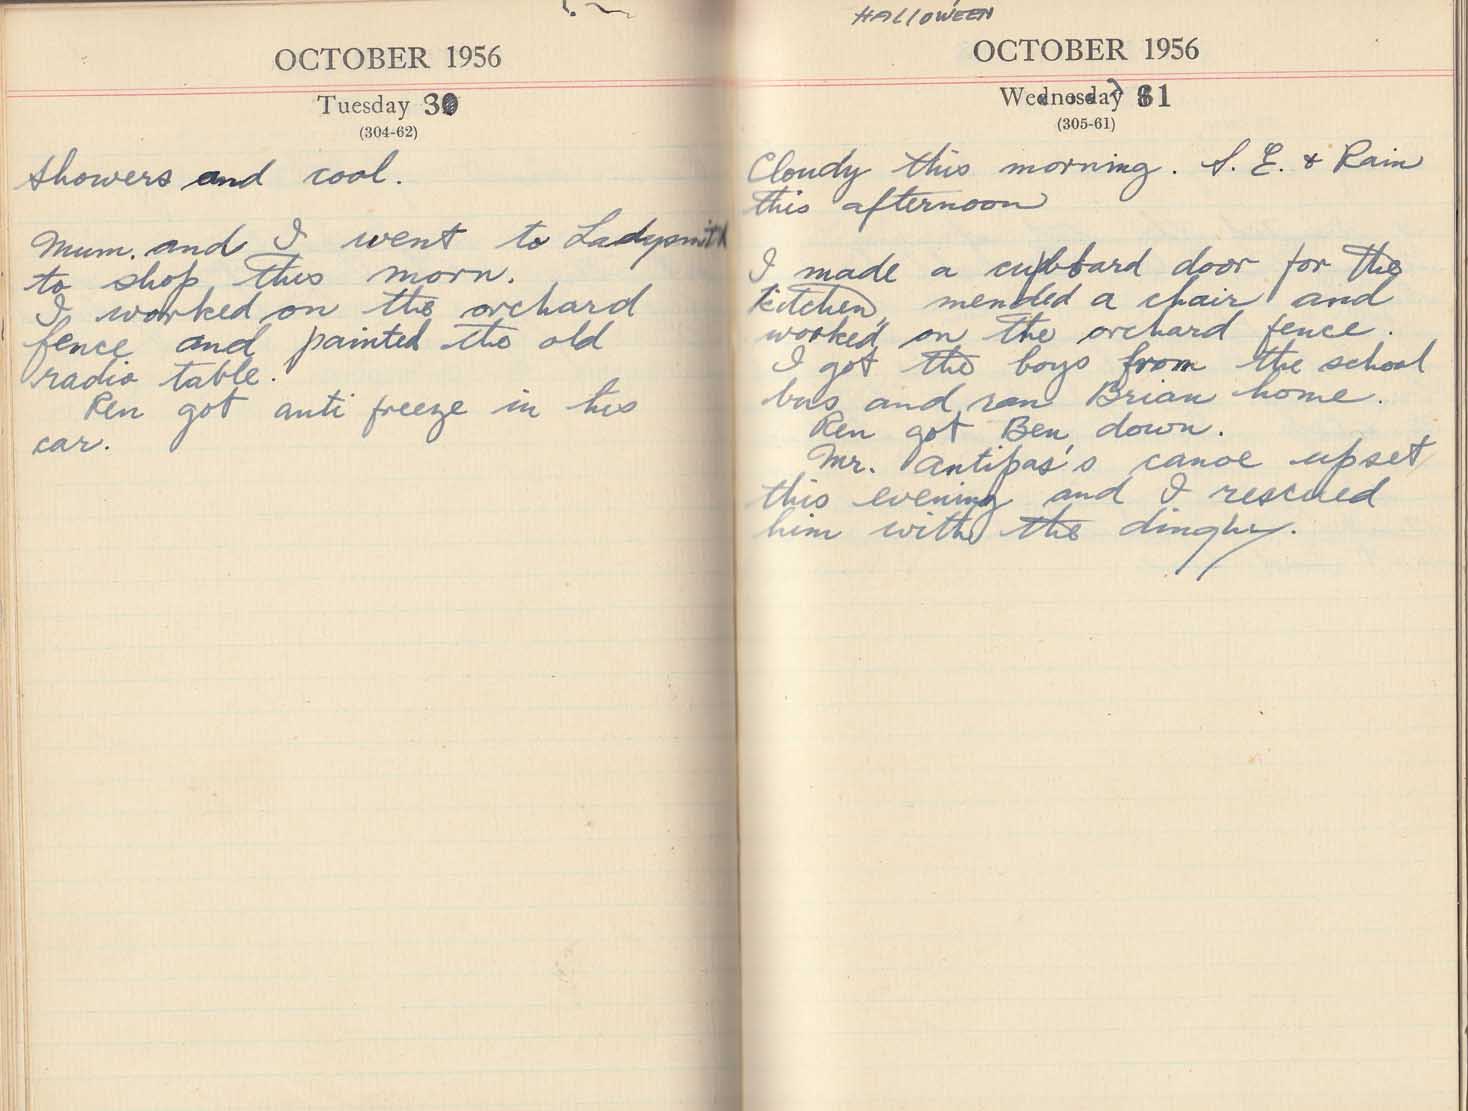 OCTOBER 1956
Tuesday 30
(304-62)
Showers and cool.
Mum. and I went to Ladysmith
to shop this morn.
I worked on the orchard
fence and painted the old
radio table.
Ren got anti freeze in his
car.
HALLOWEEN
OCTOBER 1956
Wednesday 31
(305-61)
Cloudy this morning. S. E. & Rain
this afternoon
I made a cupboard door for the
kitchen, mended a chair and
worked on the orchard fence.
I got the boys from the school
bus and ran Brian home.
Ren got Ben down.
Mr. Antipas's canoe upset
this evening and I rescued
him with the dinghy.